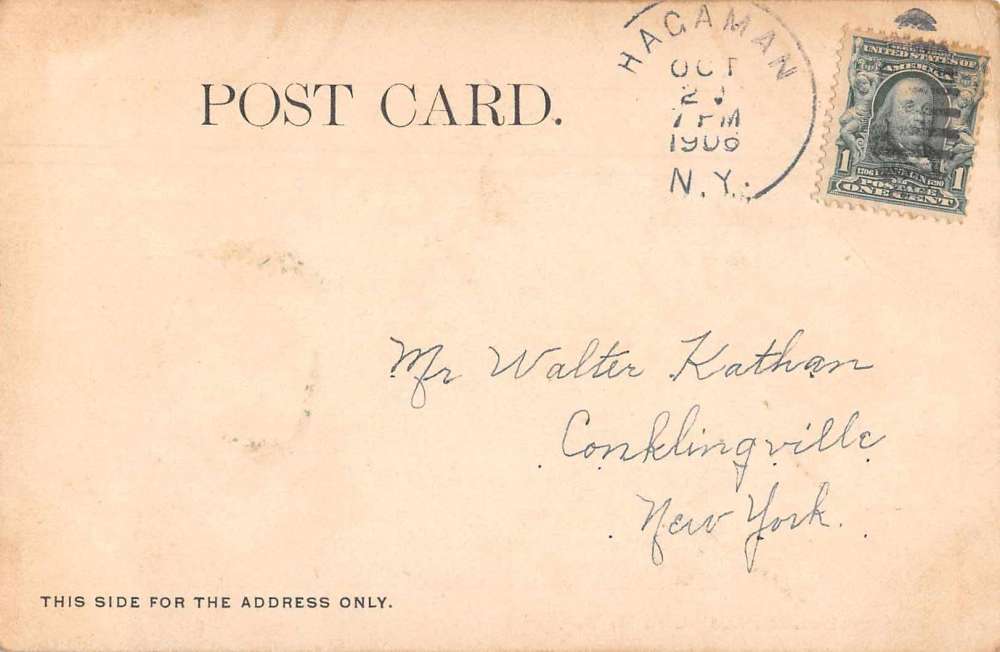 HAGAMAN
OCT
7 PM
1906
N.Y.
UNITED STATES OF
AMERICA
POST CARD.
1 1
FRANKLIN
POSTAGE
ONE CENT
Mr Walter Kathan
Conklingville
New York.
THIS SIDE FOR THE ADDRESS ONLY.